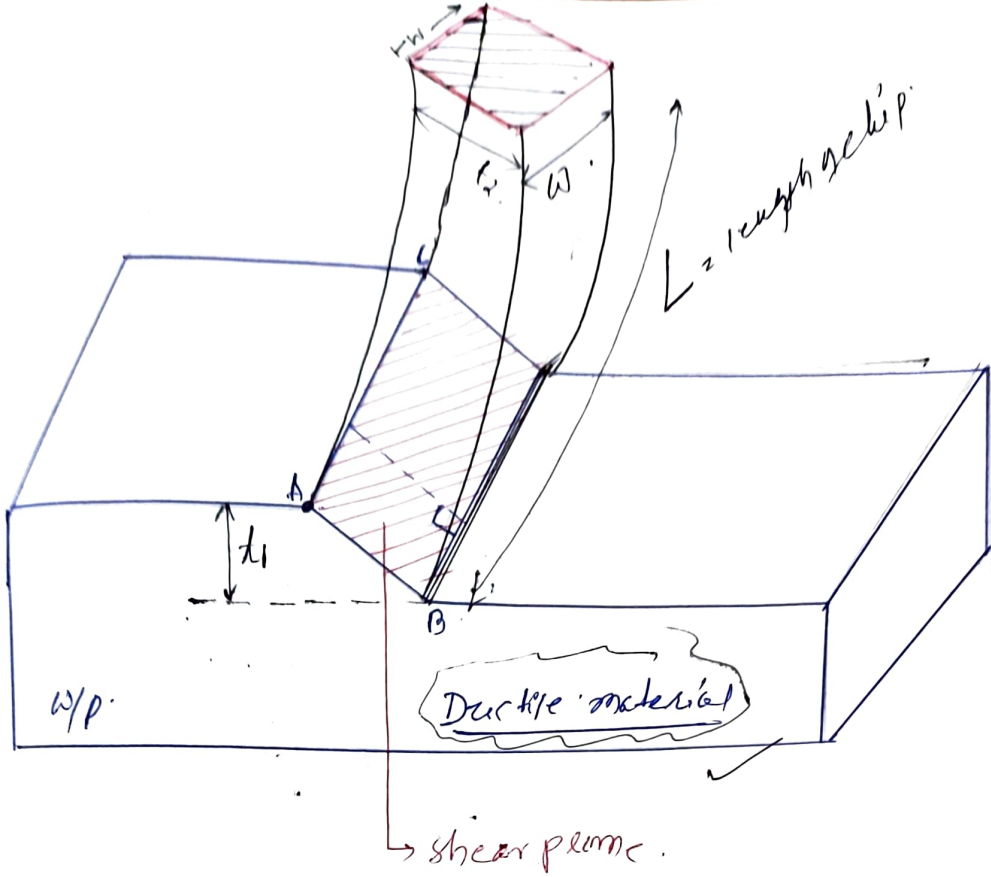 w
t₂
w
L = length of chip.
C
A
t₁
B
w/p.
Ductile material
shear plane.